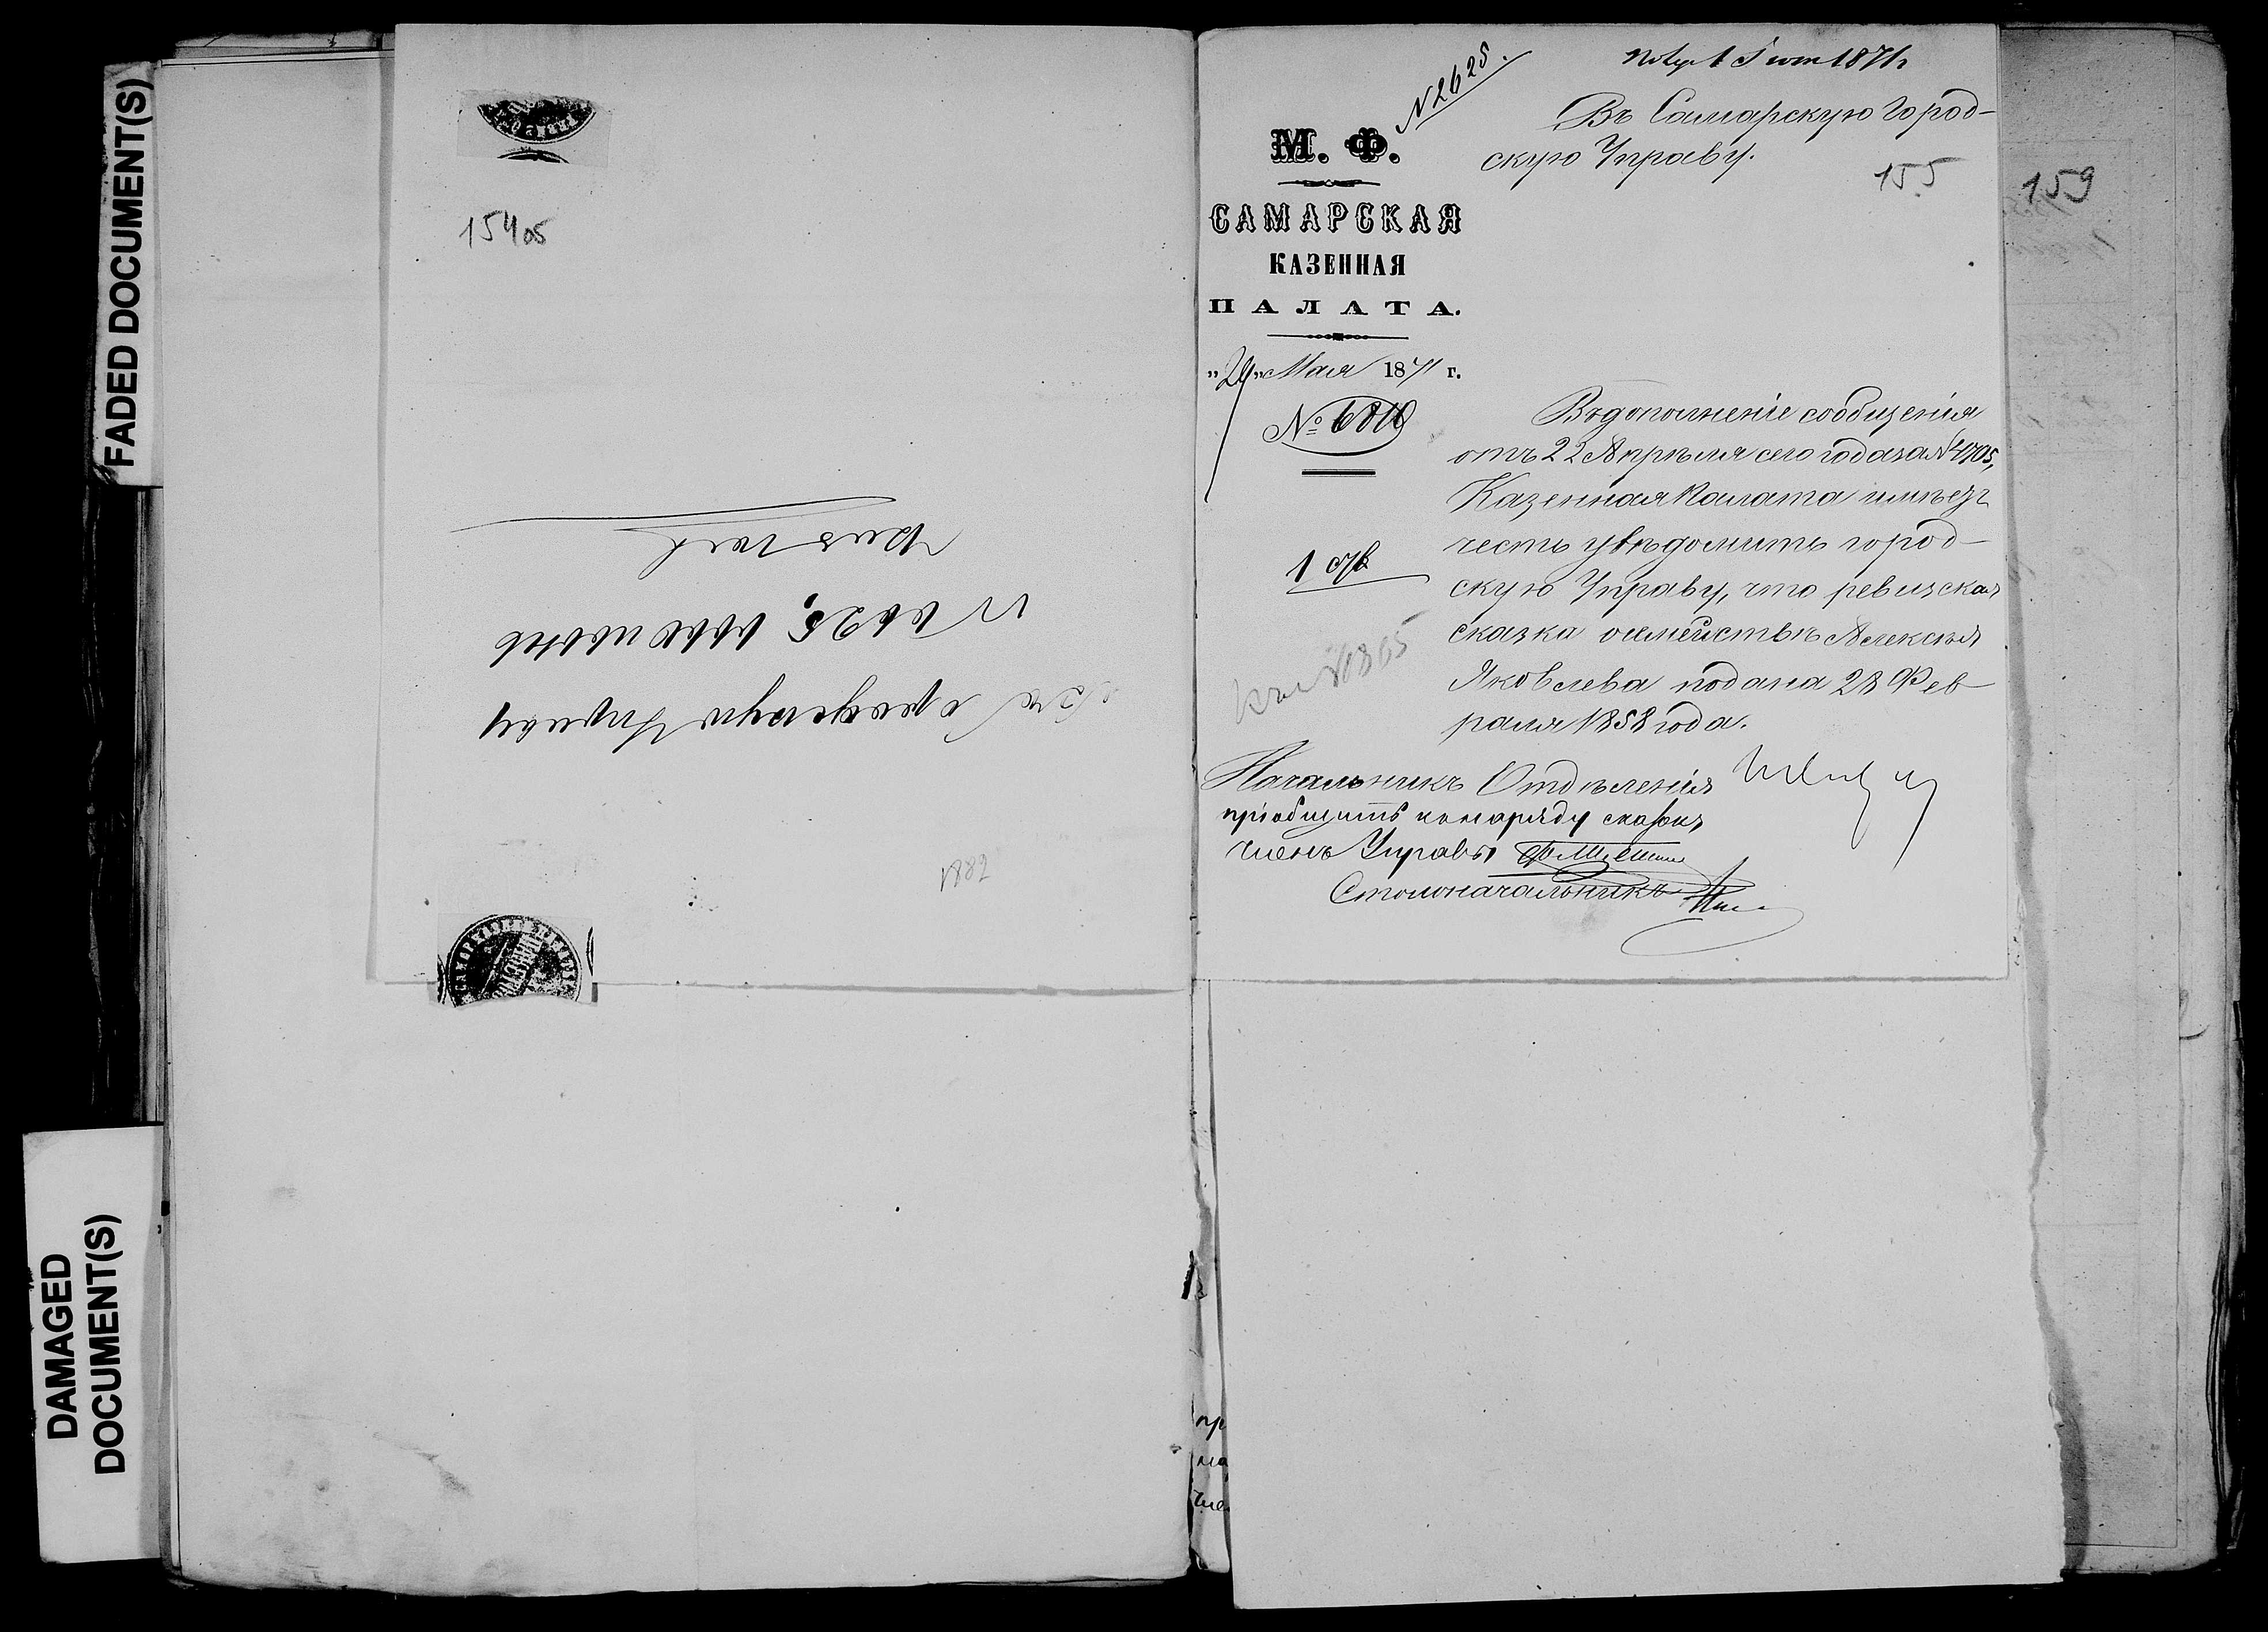 FADED DOCUMENT(S)
DAMAGED
DOCUMENT(S)
154 об
1882
№ 2625.
1871 г
М. Ф.
САМАРСКАЯ
КАЗЕННАЯ
ПАЛАТА.
„29„ Мая 1871 г.
№ 6810
Въ Самарскую Город-
скую Управу.
155
159
Въ дополненіе сообщенія
отъ 22 Апрѣля сего года за № 4705,
Казенная Палата имѣетъ
честь увѣдомить город-
скую Управу, что ревизская
сказка о семействѣ Алексѣя
Яковлева подана 28 Фев-
раля 1858 года.
Начальникъ Отдѣленія
пріобщить къ наряду сказокъ
Членъ Управы
Столоначальникъ